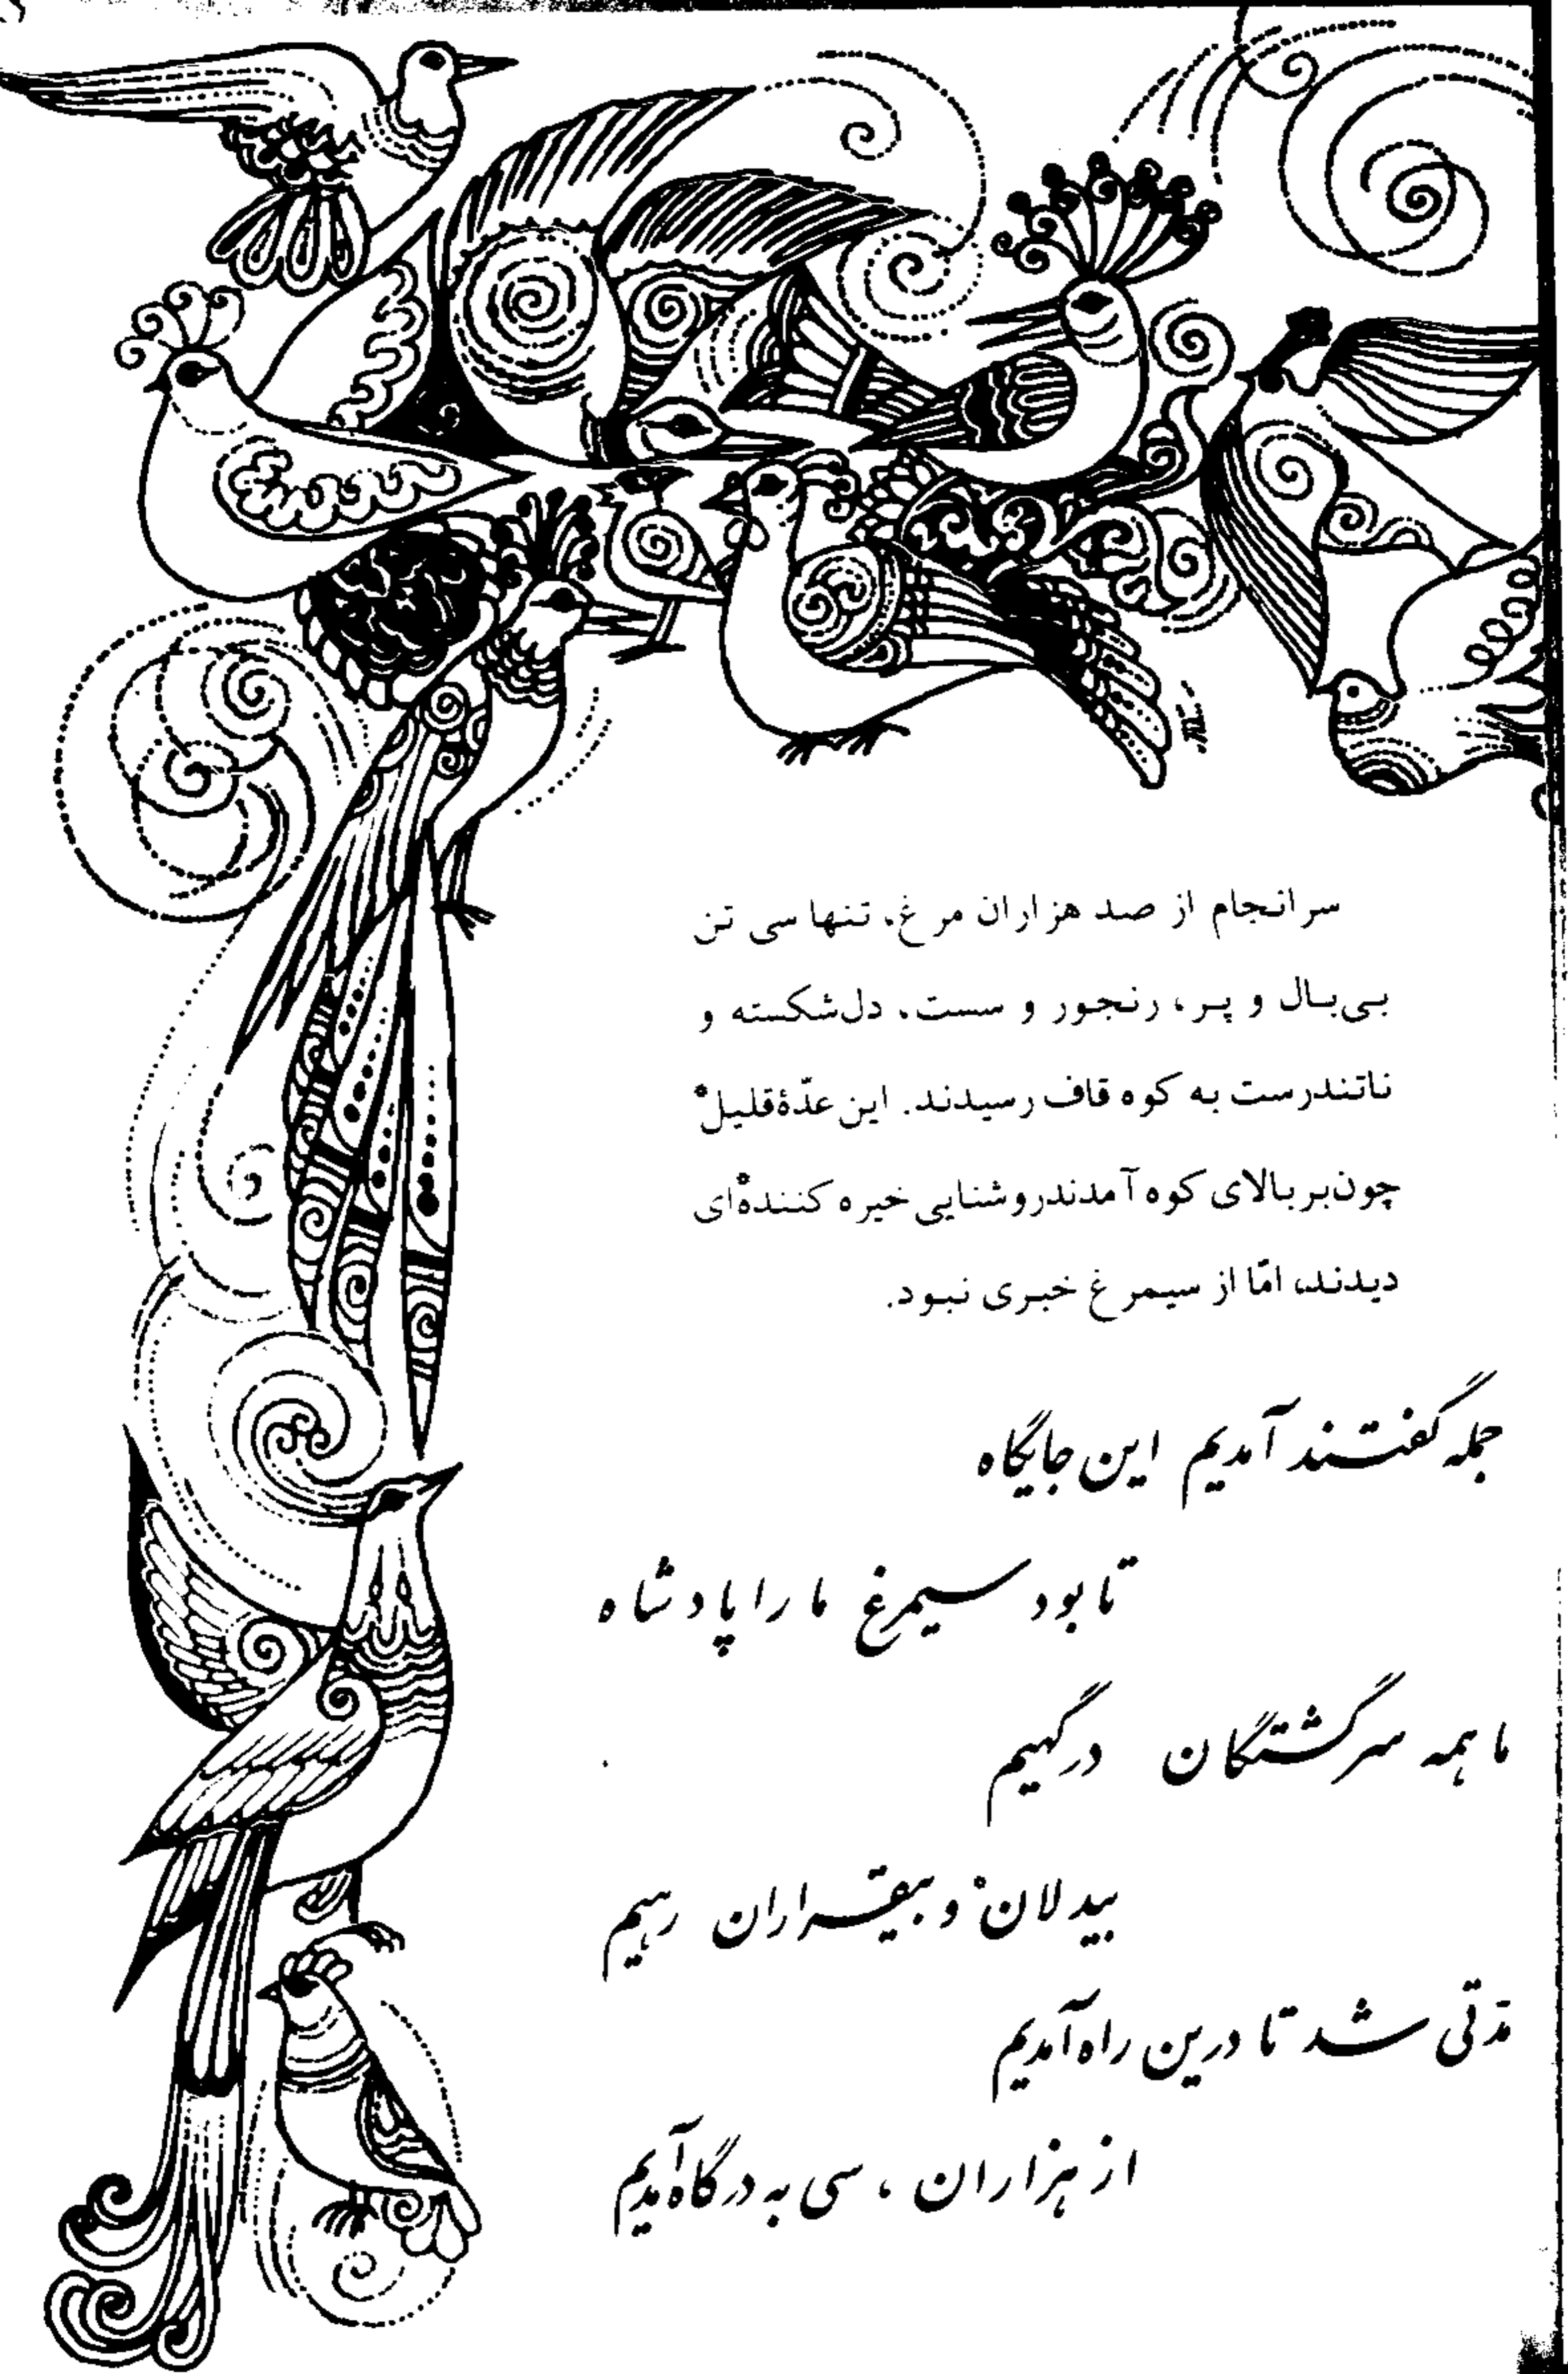 سرانجام از صد هزاران مرغ، تنها سی تن
بی‌بال و پر، رنجور و سست، دل‌شکسته و
ناتندرست به کوه قاف رسیدند. این عدّهٔ قلیل*
چون بر بالای کوه آمدند روشنایی خیره کننده‌ای
دیدند، امّا از سیمرغ خبری نبود.
جمله گفتند آمدیم این جایگاه
تا بود سیمرغ ما را پادشاه
ما همه سرگشتگان درگهیم
بیدلان* و بیقراران رهیم
مدّتی شد تا درین راه آمدیم
از هزاران، سی به درگاه آمدیم